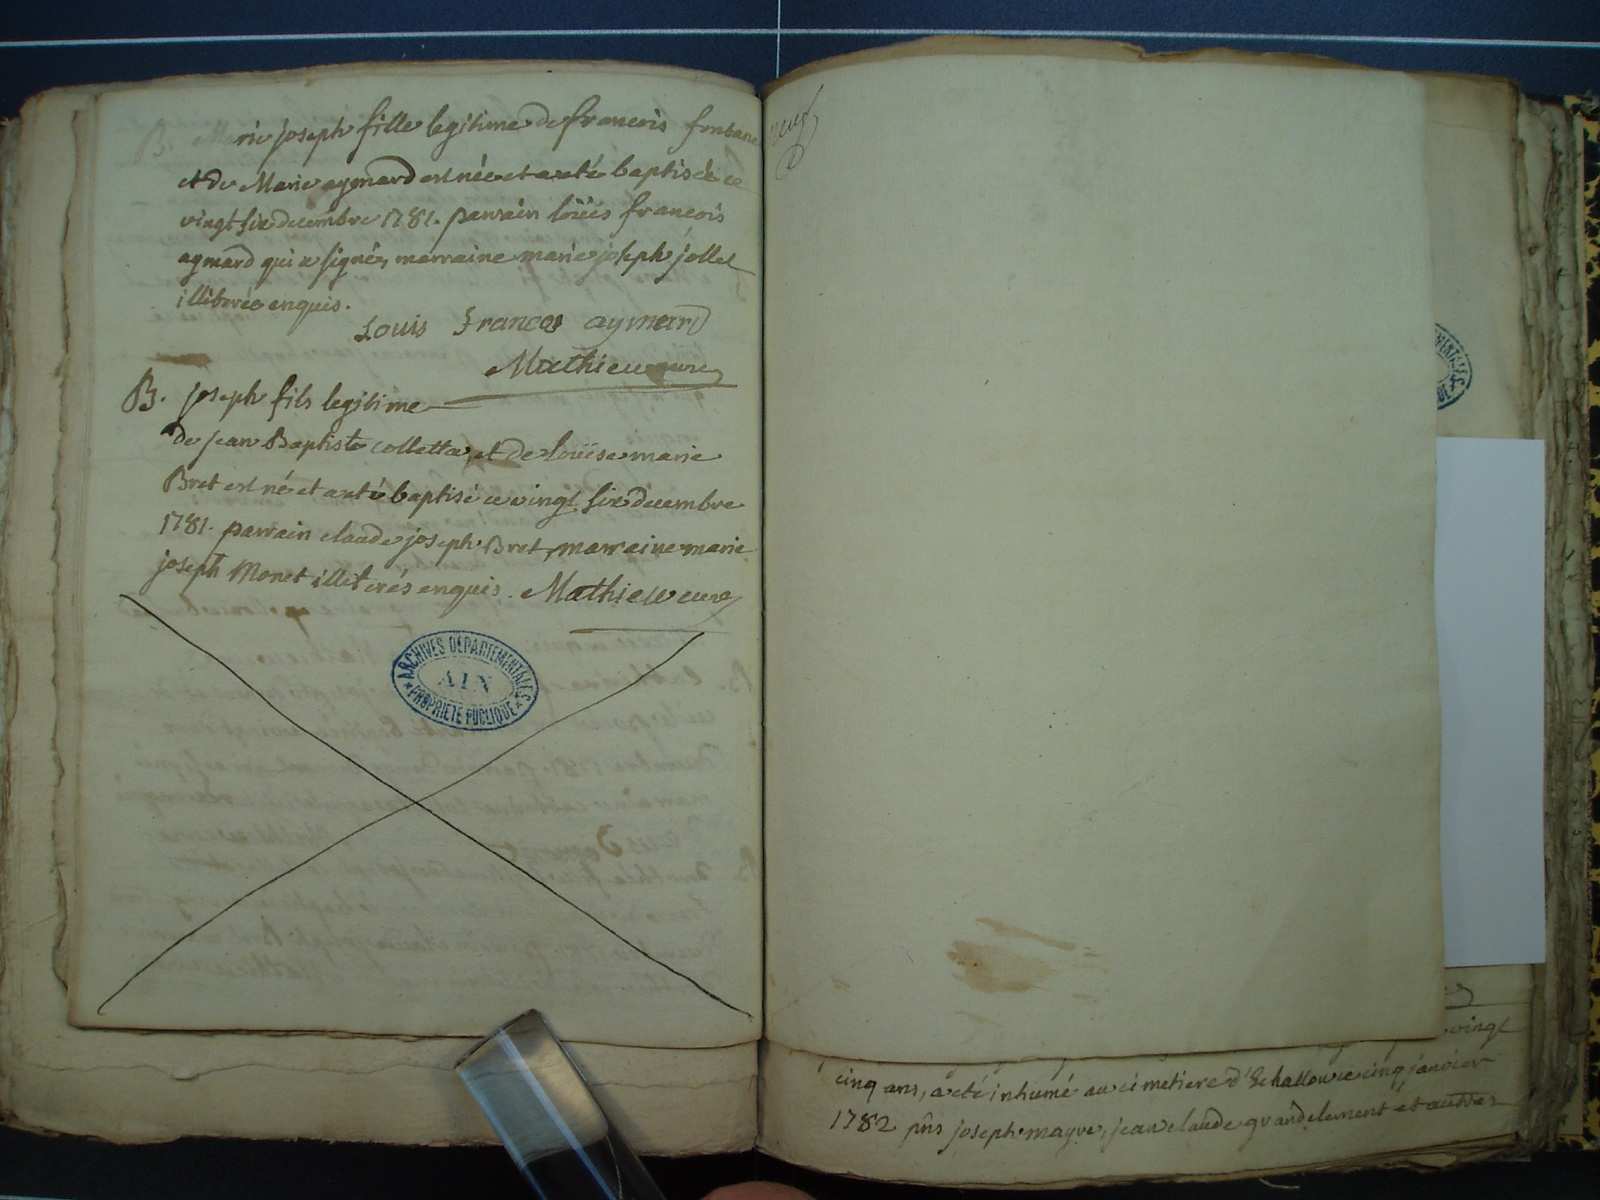 B. Marie joseph fille legitime de francois fontane
et de Marie aymard est née et a eté baptisée ce
vingt six decembre 1781. parrain loüis francois
aymard qui a signé, marraine marie joseph jollet
illiterée enquis.
Louis Francos aymard
Mathieu curé
B. joseph fils legitime
de jean Baptiste colletta et de loüise marie
Bret est né et a eté baptisé ce vingt six decembre
1781. parrain claude joseph Bret, marraine marie
joseph Monet illiterés enquis. Mathieu curé
ARCHIVES DÉPARTEMENTALES
AIN
PROPRIÉTÉ PUBLIQUE
vingt
cinq ans, a eté inhumé au cimetiere d'Echallon ce cinq janvier
1782 pñs joseph mayve, jean claude grandclement et autres